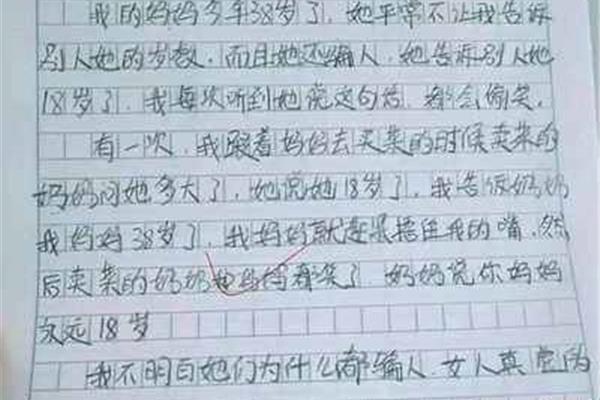 我的妈妈今年38岁了,她平常不让我告诉
别人她的岁数,而且她还骗人,她告诉别人她
18岁了,我每次听到她说这句话,都会偷笑。
有一次,我跟着妈妈去买菜的时候卖菜的
奶奶问她多大了,她说她18岁了,我告诉奶奶
我妈妈38岁了,我妈妈就赶紧捂住我的嘴,然
后卖菜的奶奶和妈妈都笑了,奶奶说你妈妈
永远18岁
我不明白她们为什么都骗人,女人真虚伪